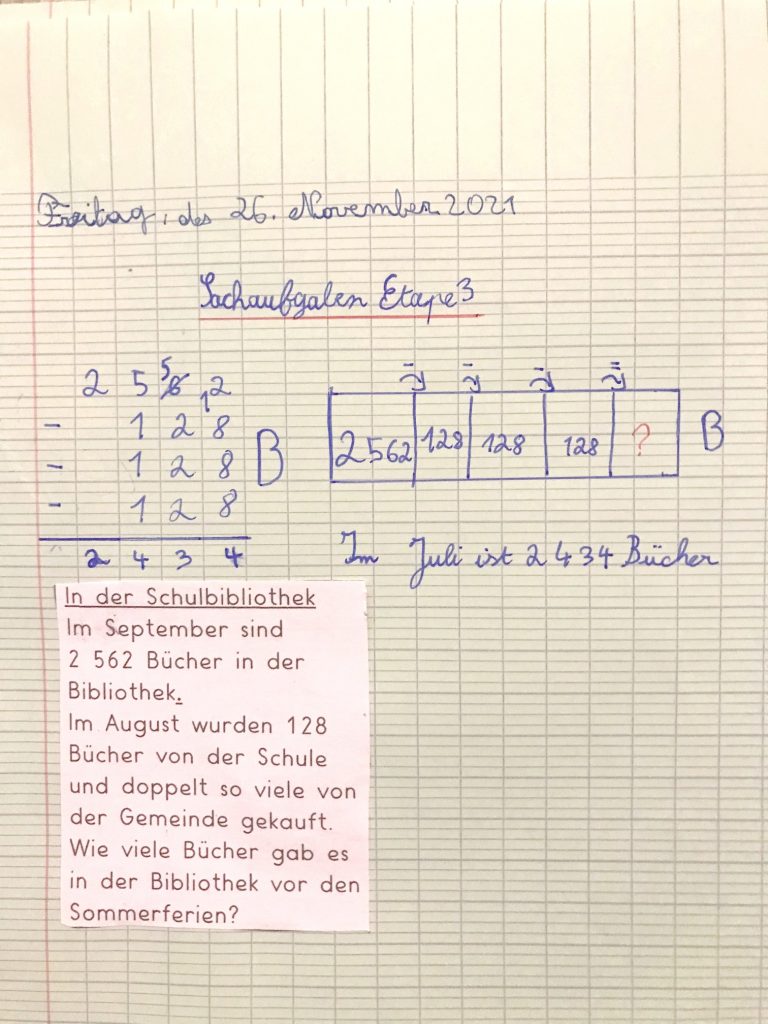 Freitag, des 26. November 2021
Sachaufgalen Etape 3
2 5 5 6 12
- 1 2 8
- 1 2 8
- 1 2 8
B
2 4 3 4
2562 128 128 128 ? B
Im Juli ist 2 434 Bücher
In der Schulbibliothek
Im September sind
2 562 Bücher in der
Bibliothek.
Im August wurden 128
Bücher von der Schule
und doppelt so viele von
der Gemeinde gekauft.
Wie viele Bücher gab es
in der Bibliothek vor den
Sommerferien?